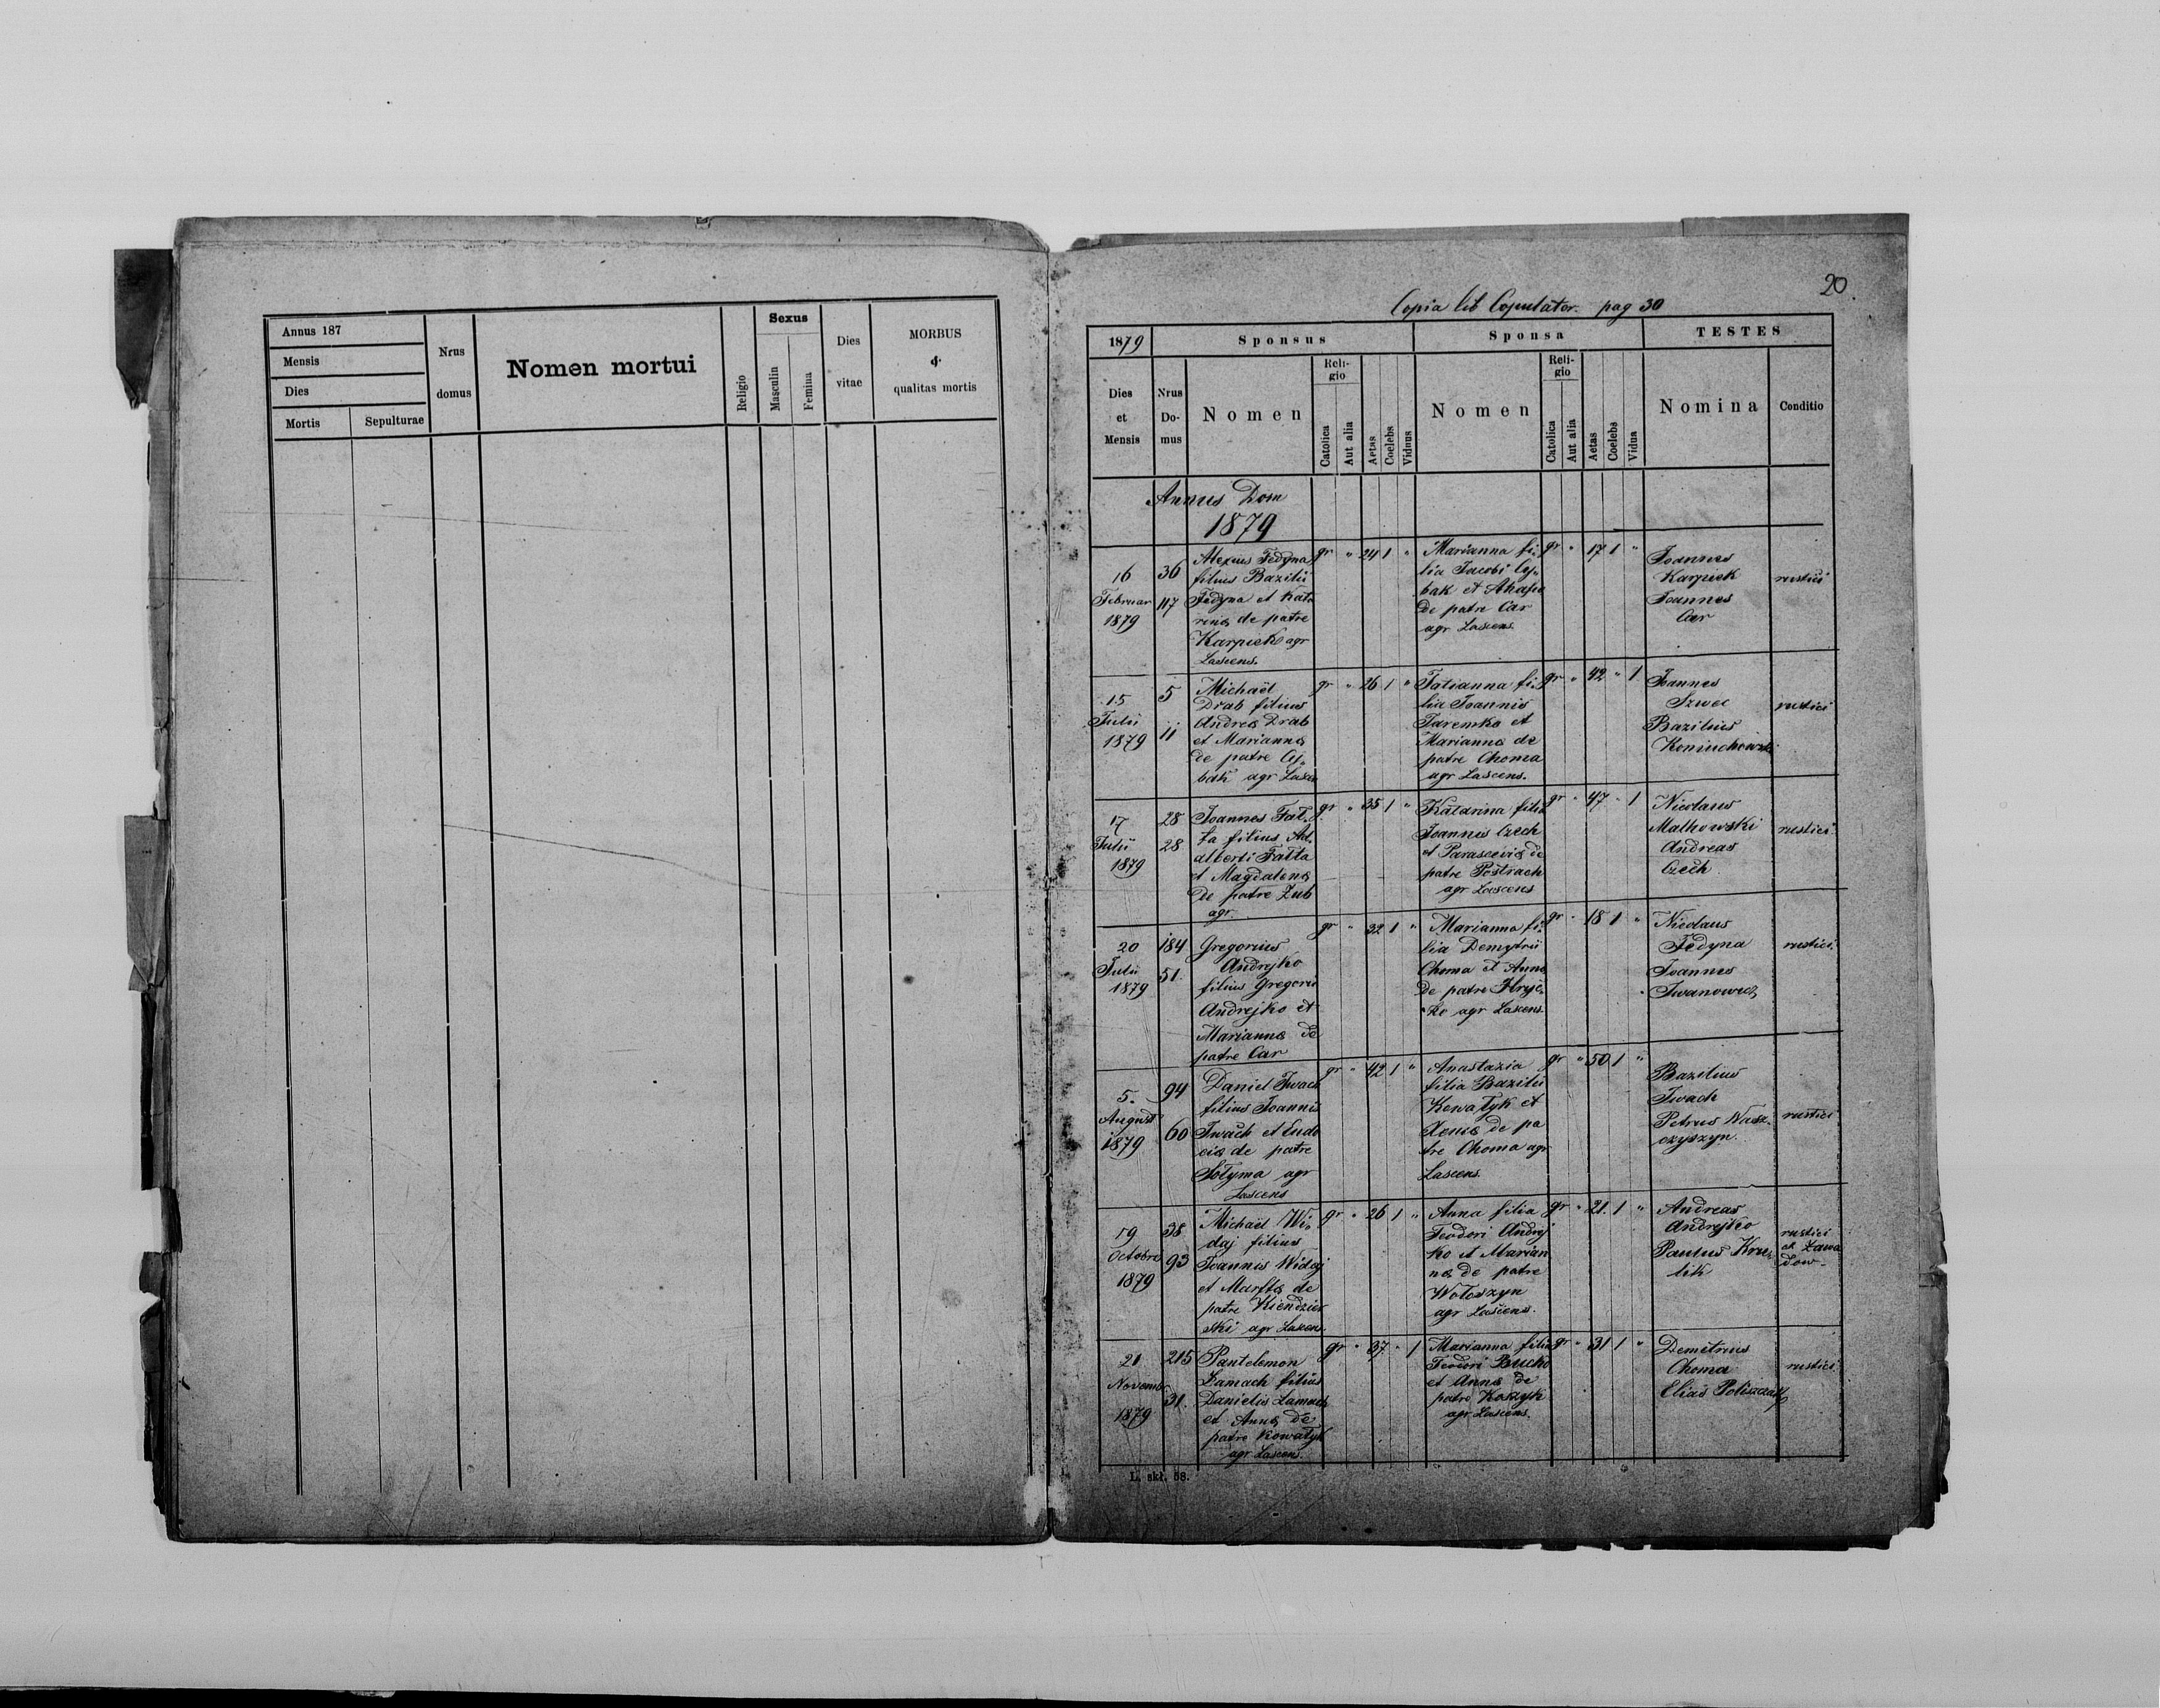 Annus 187
Mensis
Dies
Mortis
Sepulturae
Nrus
domus
Nomen mortui
Religio
Sexus
Masculin
Femina
Dies
vitae
MORBUS
qualitas mortis
20.
Copia lib Copulator. pag 30
1879
Sponsus
Sponsa
TESTES
Dies
et
Mensis
Nrus
Do-
mus
Nomen
Reli-
gio
Catolica
Aut alia
Aetas
Coelebs
Viduus
Nomen
Reli-
gio
Catolica
Aut alia
Aetas
Coelebs
Vidua
Nomina
Conditio
Annus Dom
1879
16
Februar
1879
36
117
Alexius Fedyna
filius Bazilii
Fedyna et Kata
rina de patre
Karpiek agr
Lascens.
gr " 24 1 "
Marianna fi-
lia Jacobi Cy-
bak et
de patre Car
agr Lascens.
gr " 17 1 "
Joannes
Karpiek
Joannes
Car
rustici
15
Julii
1879
5
11
Michaël
Drab filius
Andrea Drab
et Marianna
de patre Cy-
bak agr
gr " 26 1 "
Tatianna fi-
lia Joannis
Jaremko et
Marianna de
patre Choma
agr Lascens.
gr " 42 " 1
Joannes
Szwec
Bazilius
Koniuchowski
rustici
17
Julii
1879
28
28
Joannes Fat-
ta filius Ad-
alberti Fatta
et Magdalena
de patre Zub
agr.
gr " 35 1 "
Katarina filia
Joannis Czech
et Parascevia de
patre Postrach
agr Lascens
gr " 47 " 1
Nicolaus
Malhowski
Andreas
Czech.
rustici
20
Julii
1879
184
51.
Gregorius
Andrejko
filius Gregorii
Andrejko et
Marianna de
patre Car
gr " 32 1 "
Marianna fi-
lia Demytrii
Choma et Anna
de patre Hryc-
ko agr Lascens
gr " 18 1 "
Nicolaus
Fedyna
Joannes
Iwanowecz
rustici.
5.
August
1879
94
60
Daniel Iwach
filius Joannis
Iwach et Eudo
cia de patre
Sołyma agr
Lascens
gr " 42 1 "
Anastazia
filia Bazilii
Kowałyk et
Xenia de pa
tre Choma agr
Lascens.
gr " 50 1 "
Bazilius
Iwach
Petrus Wasz-
czyszyn.
rustici
19
Octobre
1879
38
93
Michaël Wi-
daj filius
Joannis Widaj
et Martha de
patre Kiendzier
ski agr Lascens.
gr " 26 1 "
Anna filia
Teodori Andrej
ko et Marian
na de patre
Wołoszyn
agr Lascens.
gr " 21. 1 "
Andreas
Andrejko
Paulus
lik
rustici
et Zawa
dow-
21
Novemb
1879
215
31.
Pantelemon
Łamach filius
Danielis Łamach
et Anna de
patre Kowałyk
agr Lascens.
gr " 37. " 1
Marianna filia
Teodori Bucko
et Anna de
patre Kokzyk
agr Lascens.
gr " 31 1 "
Demetrius
Choma
Elias Poliszczak
rustici
L. skł. 58.